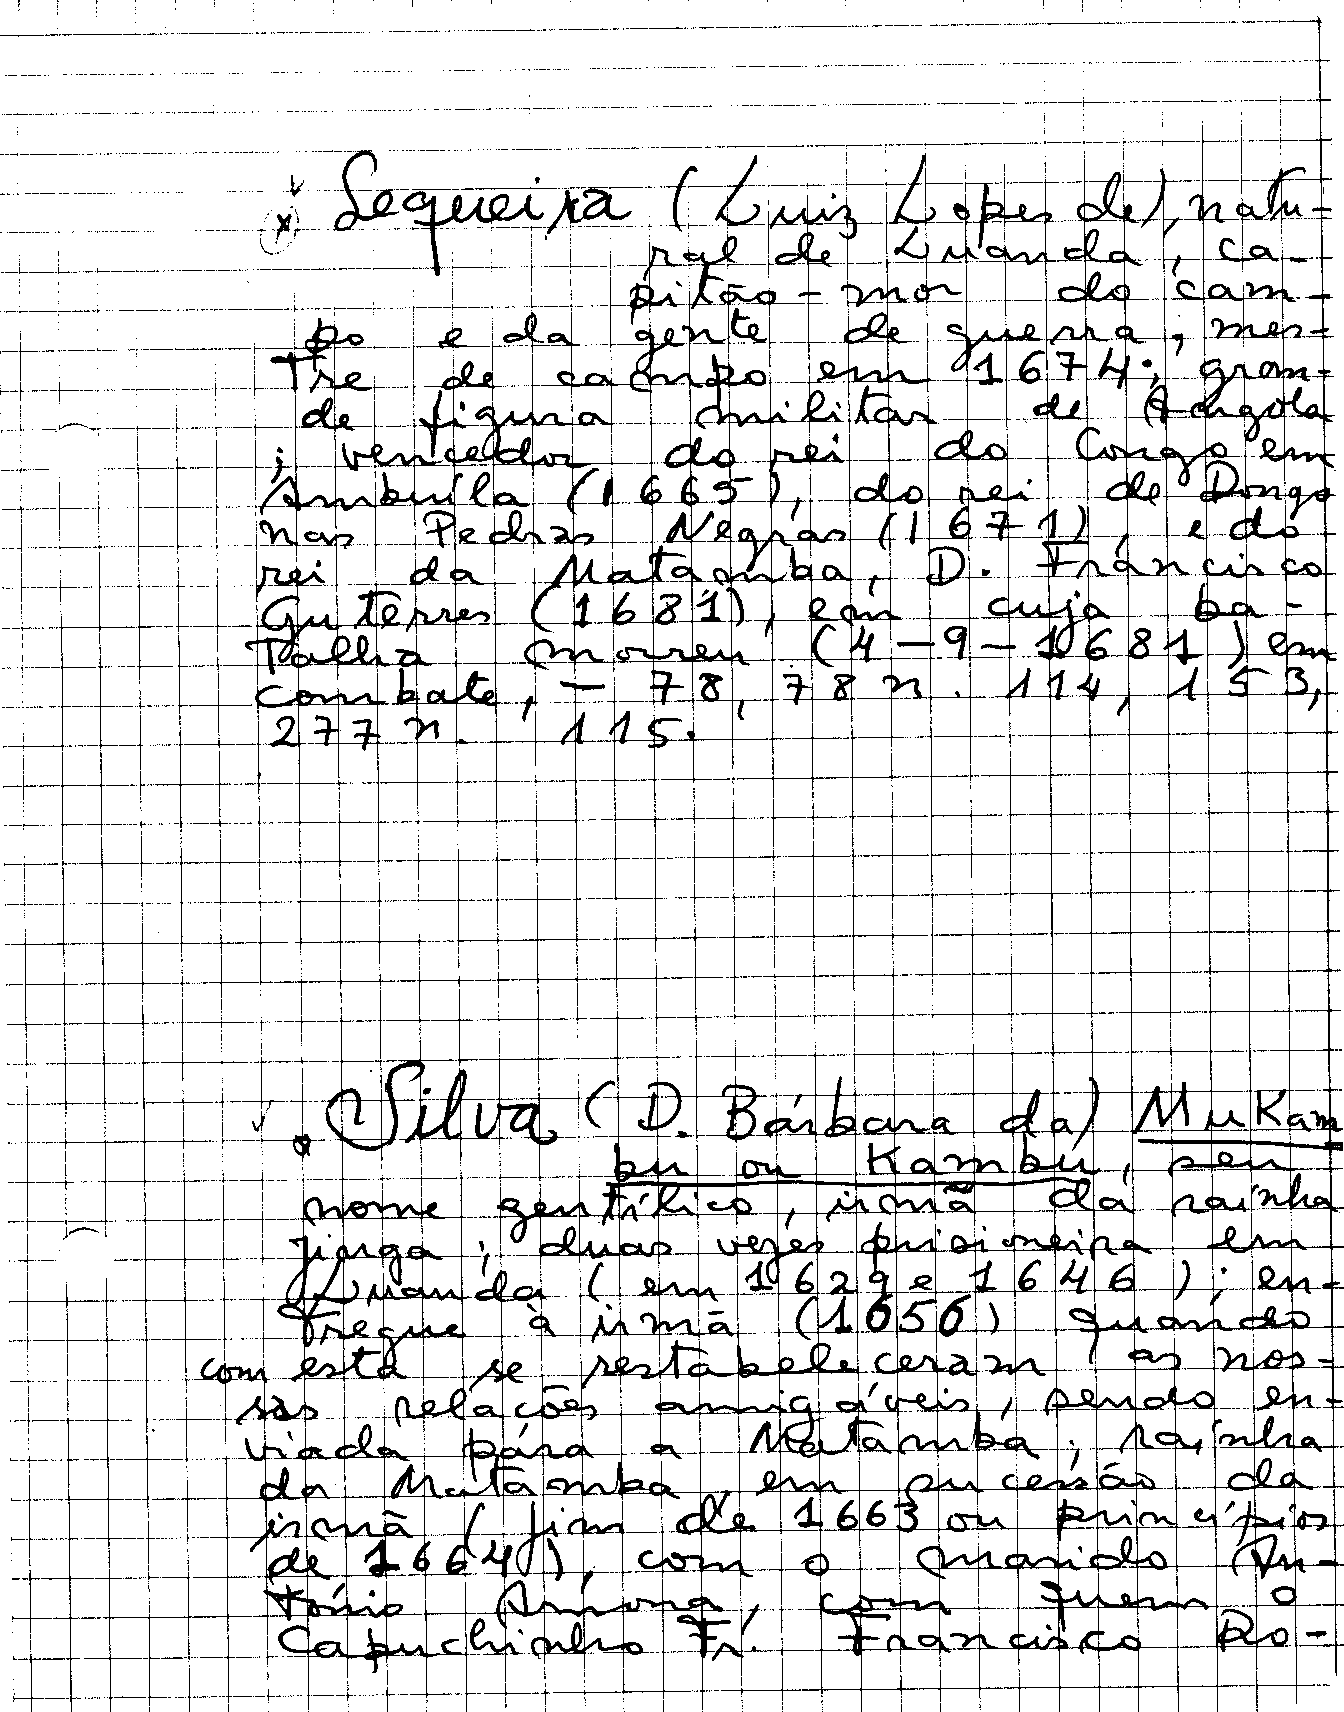 Sequeira (Luiz Lopes de), natu-
ral de Luanda, ca-
pitão-mor do cam-
po e da gente de guerra, mes-
tre de campo em 1674; gran-
de figura militar de Angola
; vencedor do rei do Congo em
Ambuíla (1665), do rei de Dongo
nas Pedras Negras (1671), e do
rei da Matamba, D. Francisco
Guterres (1681), em cuja ba-
talha morreu (4-9-1681) em
combate, - 78, 78 n. 114, 153,
277 n. 115.
Silva (D. Bárbara da) Mukam
bu ou Kambu, seu
nome gentílico, irmã da rainha
Jinga; duas vezes prisioneira em
Luanda (em 1629 e 1646); en-
tregue à irmã (1656) quando
com esta se restabeleceram as nos-
sas relações amigáveis, sendo en-
viada para a Matamba; rainha
da Matamba em sucessão da
irmã (fim de 1663 ou princípios
de 1664), com o marido An-
tónio, com quem o
Capuchinho Fr. Francisco Ro-